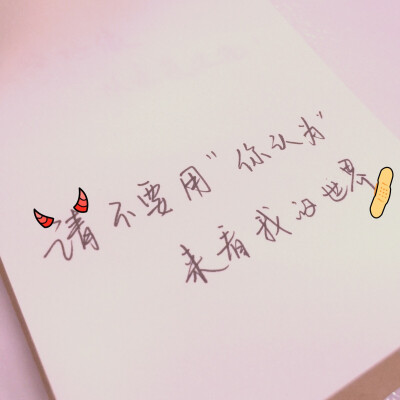 请不要用"你认为"
来看我的世界